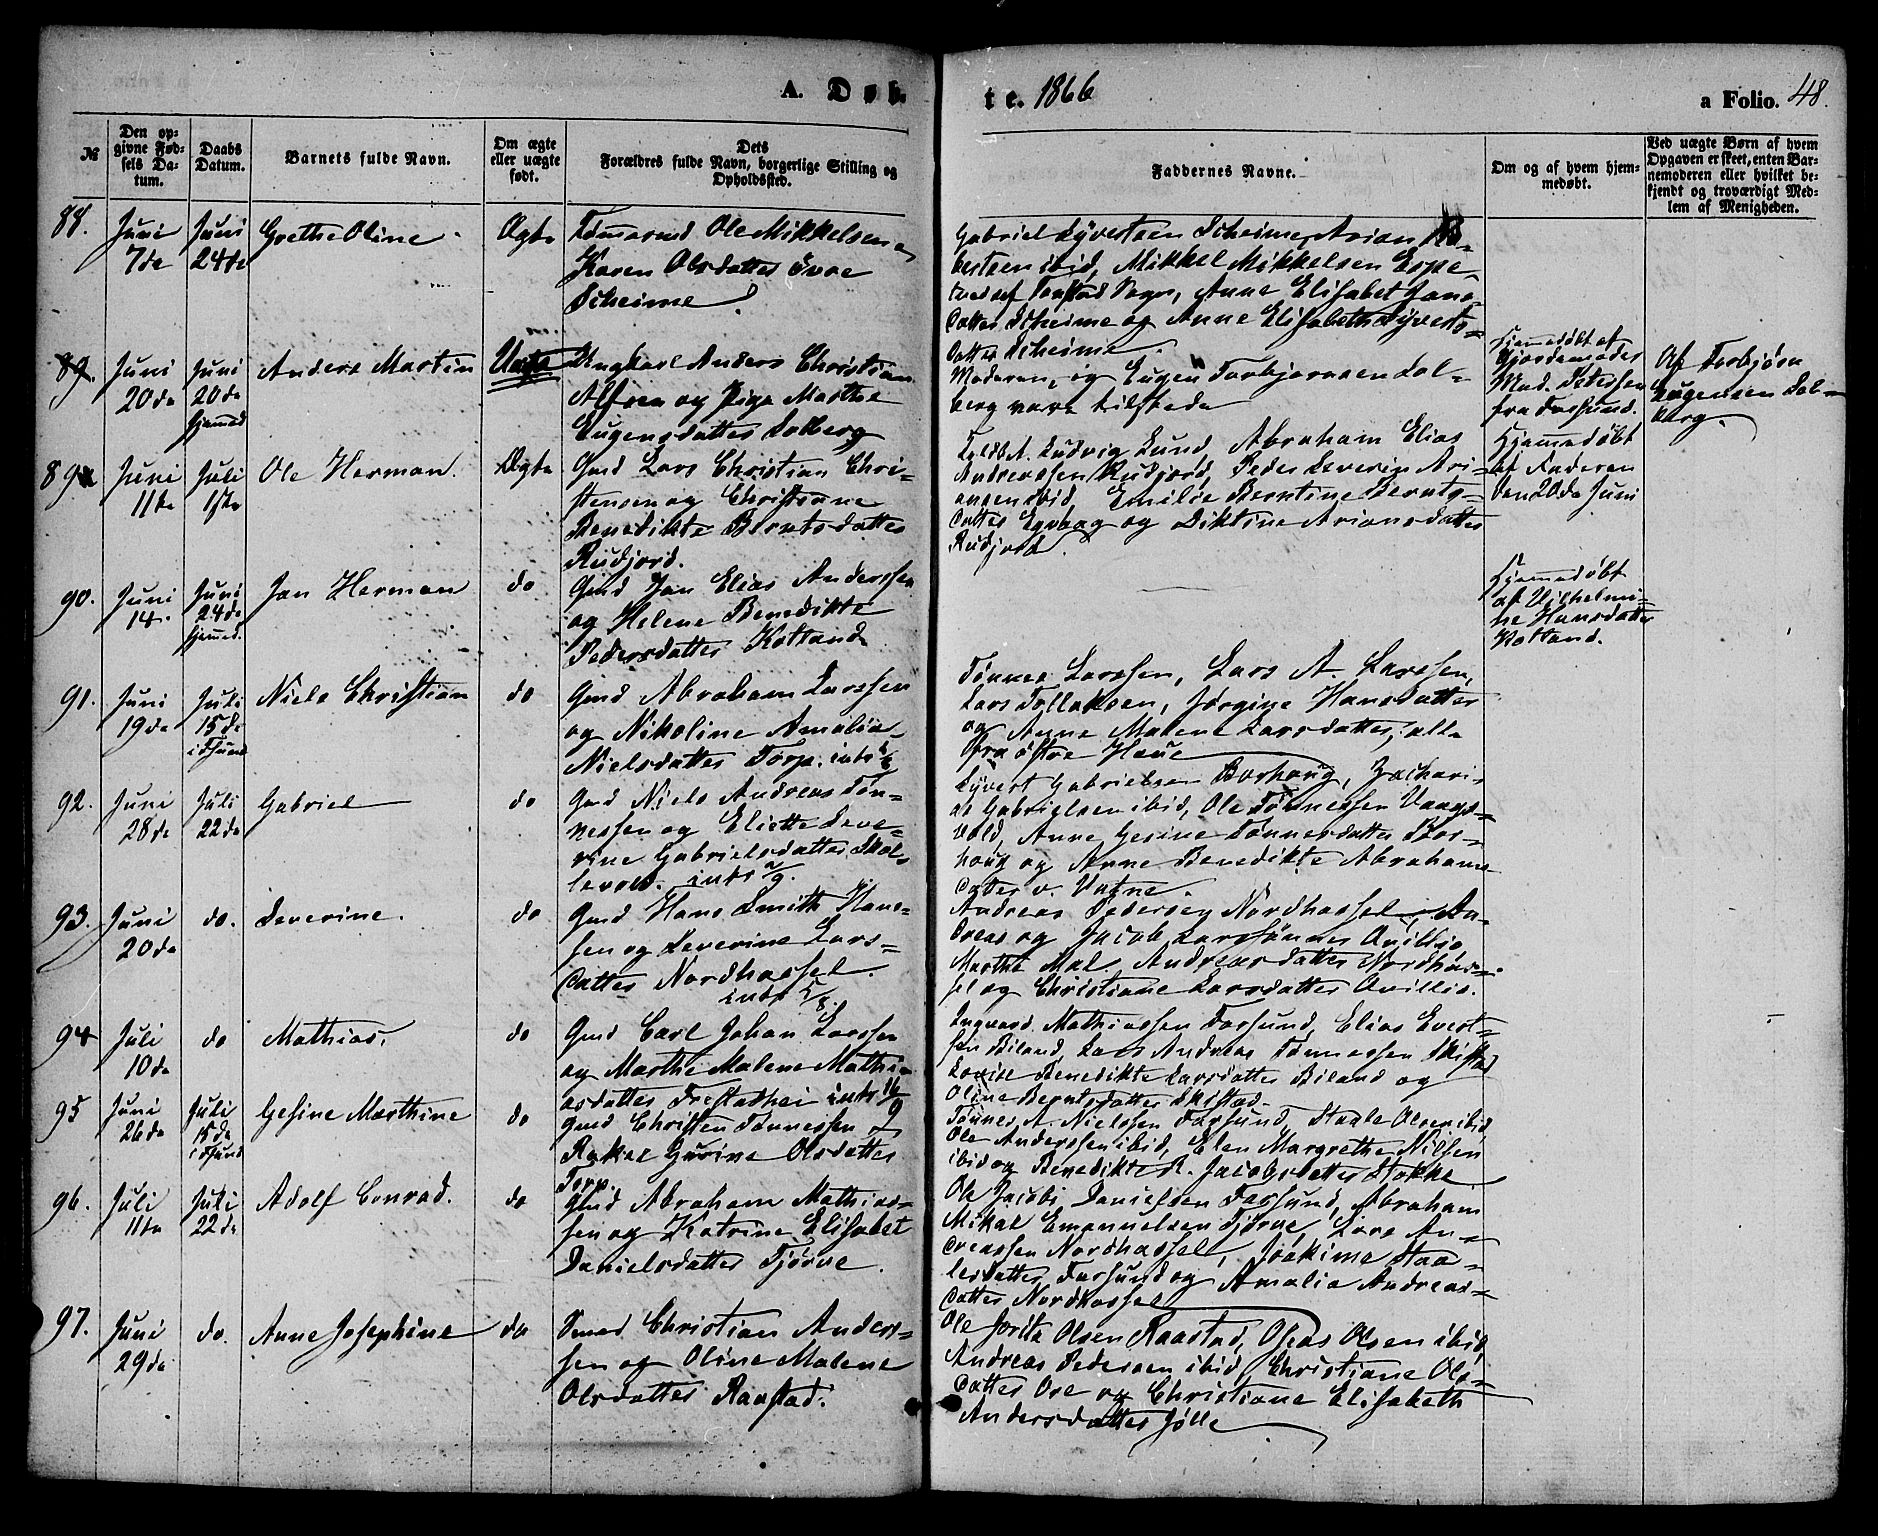 A. Døb-
te. 1866
a Folio. 48.
№
Den op-
givne Fød-
sels Da-
tum.
Daabs
Datum.
Barnets fulde Navn.
Om ægte
eller uægte
født.
Dets
Forældres fulde Navn, borgerlige Stilling og
Opholdssted.
Faddernes Navne.
Om og af hvem hjem-
medøbt.
Ved uægte Børn af hvem
Opgaven er skeet, enten Bar-
nemoderen eller hvilket be-
kjendt og troværdigt Med-
lem af Menigheden.
88.
Juni
7de
Juni
24de
Grethe Oline
Ægte
Ole Mikkelsen
Karen Olsdatter övre
Scheime
Gabriel Syvertsen Scheime, Arian
ibid, Mikkel Mikkelsen Espe-
Sogn, Anne Elisabet Jans-
datter Scheime og Anne Elisabeth Syverts-
datter Scheime.
89.
Juni
20de
Juni
20de
hjemmed
Anders Martin
Uægte
Ungkarl Anders Christian
Alfsen og Pige Marthe
Eugensdatter Lolberg
Moderen, og Eugen Torbjørnsen Lol-
berg vare tilstede
Hjemmedøbt af
Gjordemoder
Mad. Petersen
fra Farsund.
Af Torbjørn
Eugensen Lol-
berg.
89a
Juni
11te
Juli
1ste
Ole Herman.
Ægte
Gmd Lars Christian Chri-
stensen og Christiane
Benedikte Berntsdatter
Rudjord.
A. Ludvig Lund, Abraham Elias
Andreassen Rudjord, Peder Severin Ari-
ansen ibid, Emilie Berntine Bernts-
datter Egebog og Diktine Ariansdatter
Rudjord.
Hjemmedøbt
af Faderen
den 20de Juni
90.
Juni
14.
Juni
24de
hjemmed.
Jan Herman
do
Gmd Jan Elias Anderssen
og Helene Benedikte
Pedersdatter Kolland
Hjemmedøbt
af Vilhelmi-
ne Hansdatter
Kolland.
91.
Juni
19de
Juli
15de
i Fsund
Niels Christian
do
Gmd Abraham Larssen
og Nikoline Amalia
Nielsdatter Torp. intr
Tønnes Larssen, Lars A. Larssen,
Lars Tollaksen, Jørgine Hansdatter
og Anne Malene Larsdatter, alle
fra østre Haue
92.
Juni
28de
Juli
22de
Gabriel
do
Gmd Niels Andreas Tøn-
nessen og Eliette Seve-
rine Gabrielsdatter Skol-
levold. intr 2/9.
Syvert Gabrielsen Borhoug, Zachari-
as Gabrielsen ibid, Ole Tønnessen Vaags-
vold, Anne Gesine Tønnesdatter Bor-
houg og Anne Benedikte Abrahams-
datter v. Vatne.
93.
Juni
20de
do.
Severine.
do
Gmd Hans Smith Han-
sen og Severine Lars-
datter Nordhassel.
intr 5/8.
Andreas Pedersen Nordhassel, An-
dreas og Jacob Larssønner Qvillio
Marthe Mal. Andreasdatter Nordhas-
sel og Christiane Larsdatter Qvillio.
94
Juli
10de
do
Mathias.
do
Gmd Carl Johan Larssen
og Marthe Malene Mathi-
asdatter Frestadhei intr 16/9
Ingvard Mathiassen Farsund, Elias Evert-
sen Biland, Lars Andreas Tønnessen Skistad
Lovise Benedikte Larsdatter Biland og
Oline Berntsdatter Skistad.
95
Juni
26de
Juli
15de
i Fsund
Gesine Marthine
do
Gmd Christen Tønnessen &
Rakel Gurine Olsdatter
Torp.
Tønnes A. Nielssen Farsund, Staale Olsen ibid,
Ole Anderssen ibid, Elen Margrethe Nilsen
ibid og Benedikte R. Jacobsdatter Stokke.
96.
Juli
11te
Juli
22de
Adolf Conrad.
do
Gmd Abraham Mathias-
sen og Katrine Elisabet
Danielsdatter Tjørve.
Ole Jacobi Danielsen Farsund, Abraham
Mikal Emanuelsen Tjørve, Lars An-
dreassen Nordhassel, Joakime Staa-
lesdatter Farsund og Amalia Andreas-
datter Nordhassel
97.
Juni
29de
do.
Anne Josephine
do
Smed Christian Anders-
sen og Oline Malene
Olsdatter Raastad.
Ole Olsen Raastad, Olsen ibid,
Andreas Pedersen ibid, Christiane Ols-
datter Ore og Christiane Elisabeth
Andersdatter Jølle